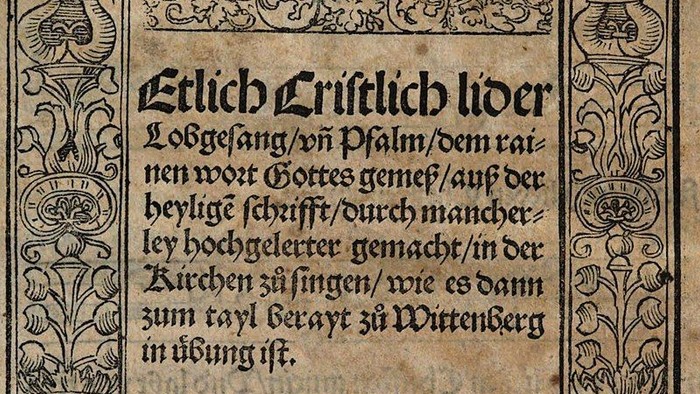 Etlich Cristlich lider
Lobgesang/vn̄ Pſalm/dem rai⸗
nen wort Gottes gemeß/auß der
heyligē ſchrifft/durch mancher⸗
ley hochgelerter gemacht/in der
Kirchen zů ſingen/ wie es dann
zum tayl berayt zů Wittenberg
in übung iſt.